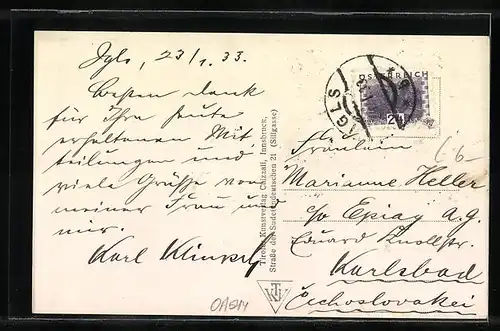 Igls, 23/1. 33.
Besten Dank
für Ihre heute
erhaltene Mit
teilungen und
viele Grüße von
meiner Frau und
mir.
Karl
Tiroler Kunstverlag Chizzali, Innsbruck,
Straße der Sudetendeutschen 21 (Sillgasse)
KTV
IGLS
ÖSTERREICH
24
Fräulein
Marianne Heller
c/o Epiag A.G.
Eduard
Karlsbad
Čechoslovakei
6-